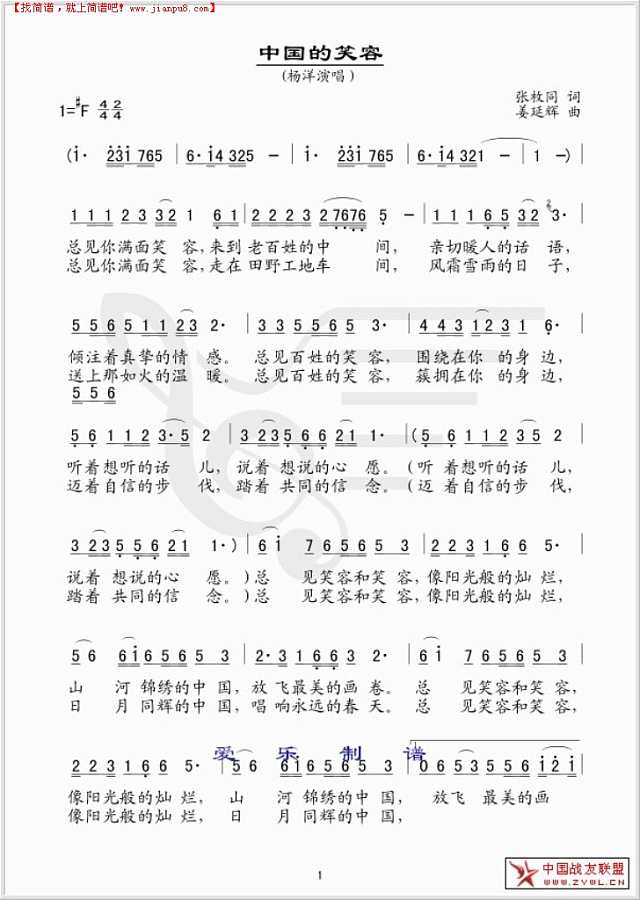 【找简谱，就上简谱吧！www.jianpu8.com】
中国的笑容
(杨洋演唱)
张枚同 词
1=#F 4/4 2/4
姜延辉 曲
(i· 231 765 | 6·14 325 — | i· 231 765 | 6·14 3 2 5 | 2321 — | 1 —) |
1 1 1 2 3 3 2 1 6 1 | 2 2 2 2 3 2 7676 5 — | 1 1 1 1 6 5 3 2 3· |
总见你满面笑 容，来到 老百姓的中 间， 亲切暖人的话 语，
总见你满面笑 容，走在 田野工地车 间， 风霜雪雨的日 子，
5 5 6 5 1 1 2 3 2· | 3 5 5 5 6 5 1 2· | 4 4 3 1 2 3 1 6· |
倾注着真挚的情 感。 总见百姓的笑 容， 围绕在你 的身边，
送上那如火的温 暖。 总见百姓的笑 容， 簇拥在你 的身边，
5 5 6
5 5 6 1 1 2 3·5 2 | 3 2 3 5 5 6 6 2 1 1· | (5 5 6 1 1 2 3·5 2 |
听着想听的话 儿，说着 想说的心 愿。(听 着想听的话 儿，
迈着自信的步 伐，踏着 共同的信 念。(迈 着自信的步 伐，
3 2 3 5 5 6 2 1 1·) | 6 i 7 6 5 6 5 3 | 2 2 3 1 6 6 5· |
说着 想说的心 愿。)总 见笑容和笑 容，像阳光般的灿 烂，
踏着 共同的信 念。)总 见笑容和笑 容，像阳光般的灿 烂，
5 6 6 i 6 5 6 5 3 | 2·3 1 6 6 2 1 1· | 6 i 7 6 5 6 5 3 |
山 河 锦绣的中 国，放 飞最美的画 卷。总 见笑容和笑 容，
日 月 同辉的中 国，唱 响永远的春 天。总 见笑容和笑 容，
爱 乐 制 谱
2 2 3 1 6 6 5· | 5 6 6 i 6 5 6 5 3 | 0 6 5 3 5 5 i 2 i |
像阳光般的灿 烂， 山 河 锦绣的中 国， 放飞 最美的画
像阳光般的灿 烂， 日 月 同辉的中 国，
1
中国战友联盟
www.ZYWL.CN